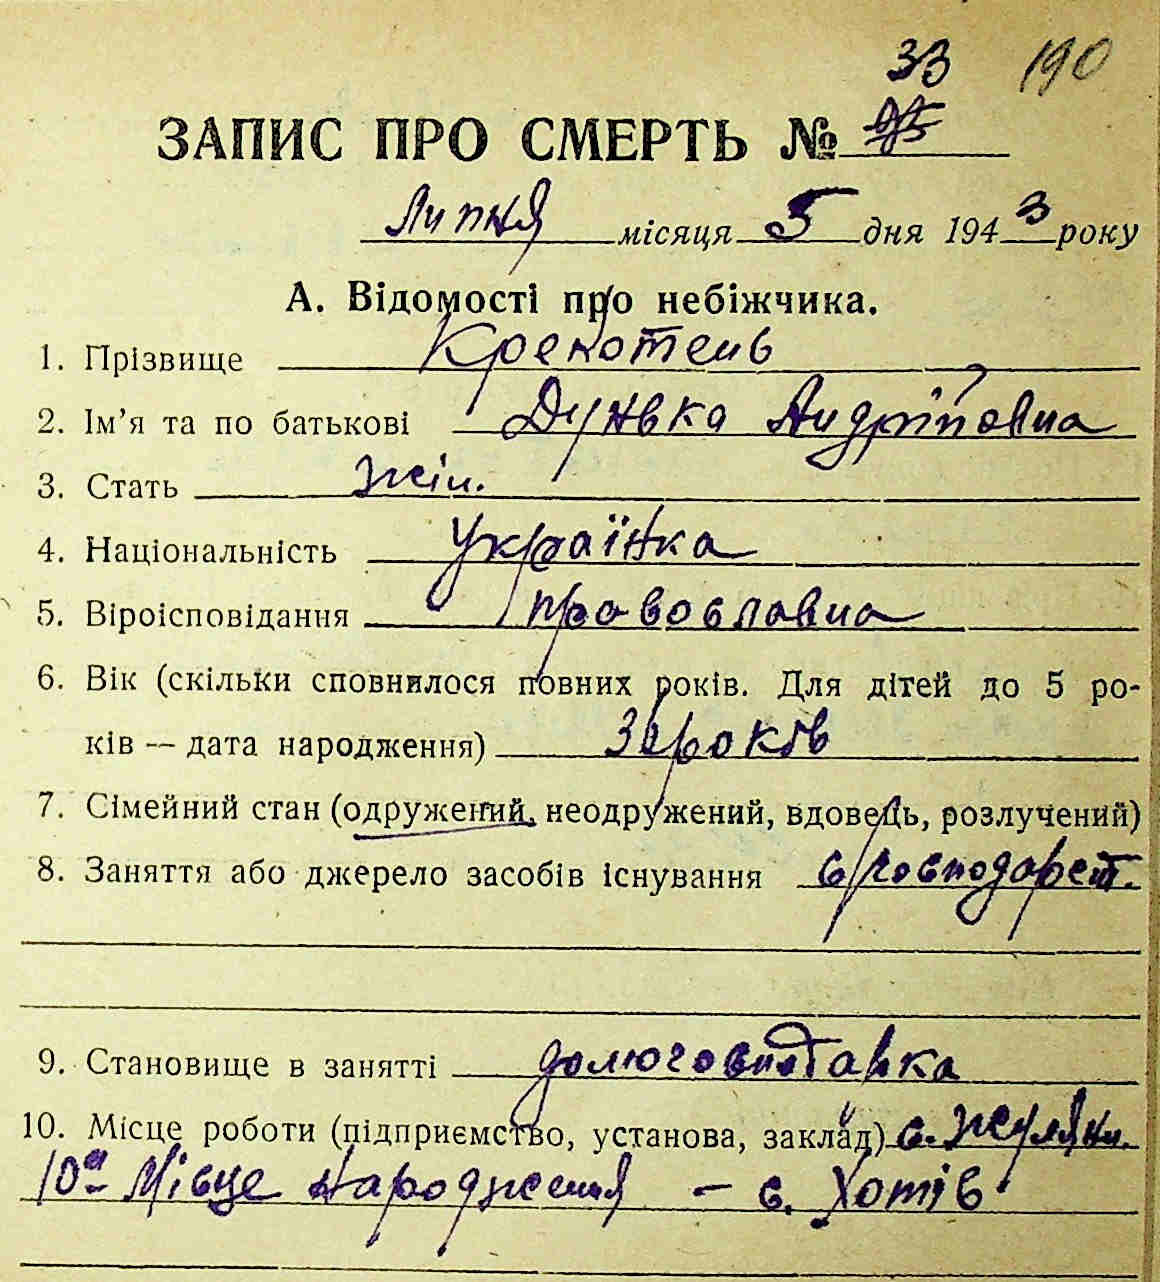 33 190
ЗАПИС ПРО СМЕРТЬ №
Липня місяця 5 дня 1943 року
А. Відомості про небіжчика.
1. Прізвище Крекотень
2. Ім’я та по батькові Дунька Андріївна
3. Стать жін.
4. Національність Українка
5. Віроісповідання православна
6. Вік (скільки сповнилося повних років. Для дітей до 5 ро-
ків — дата народження) років
7. Сімейний стан (одружений, неодружений, вдовець, розлучений)
8. Заняття або джерело засобів існування с/господарст.
9. Становище в занятті
10. Місце роботи (підприємство, установа, заклад) с. Жуляни.
10а Місце народження — с. Хотів